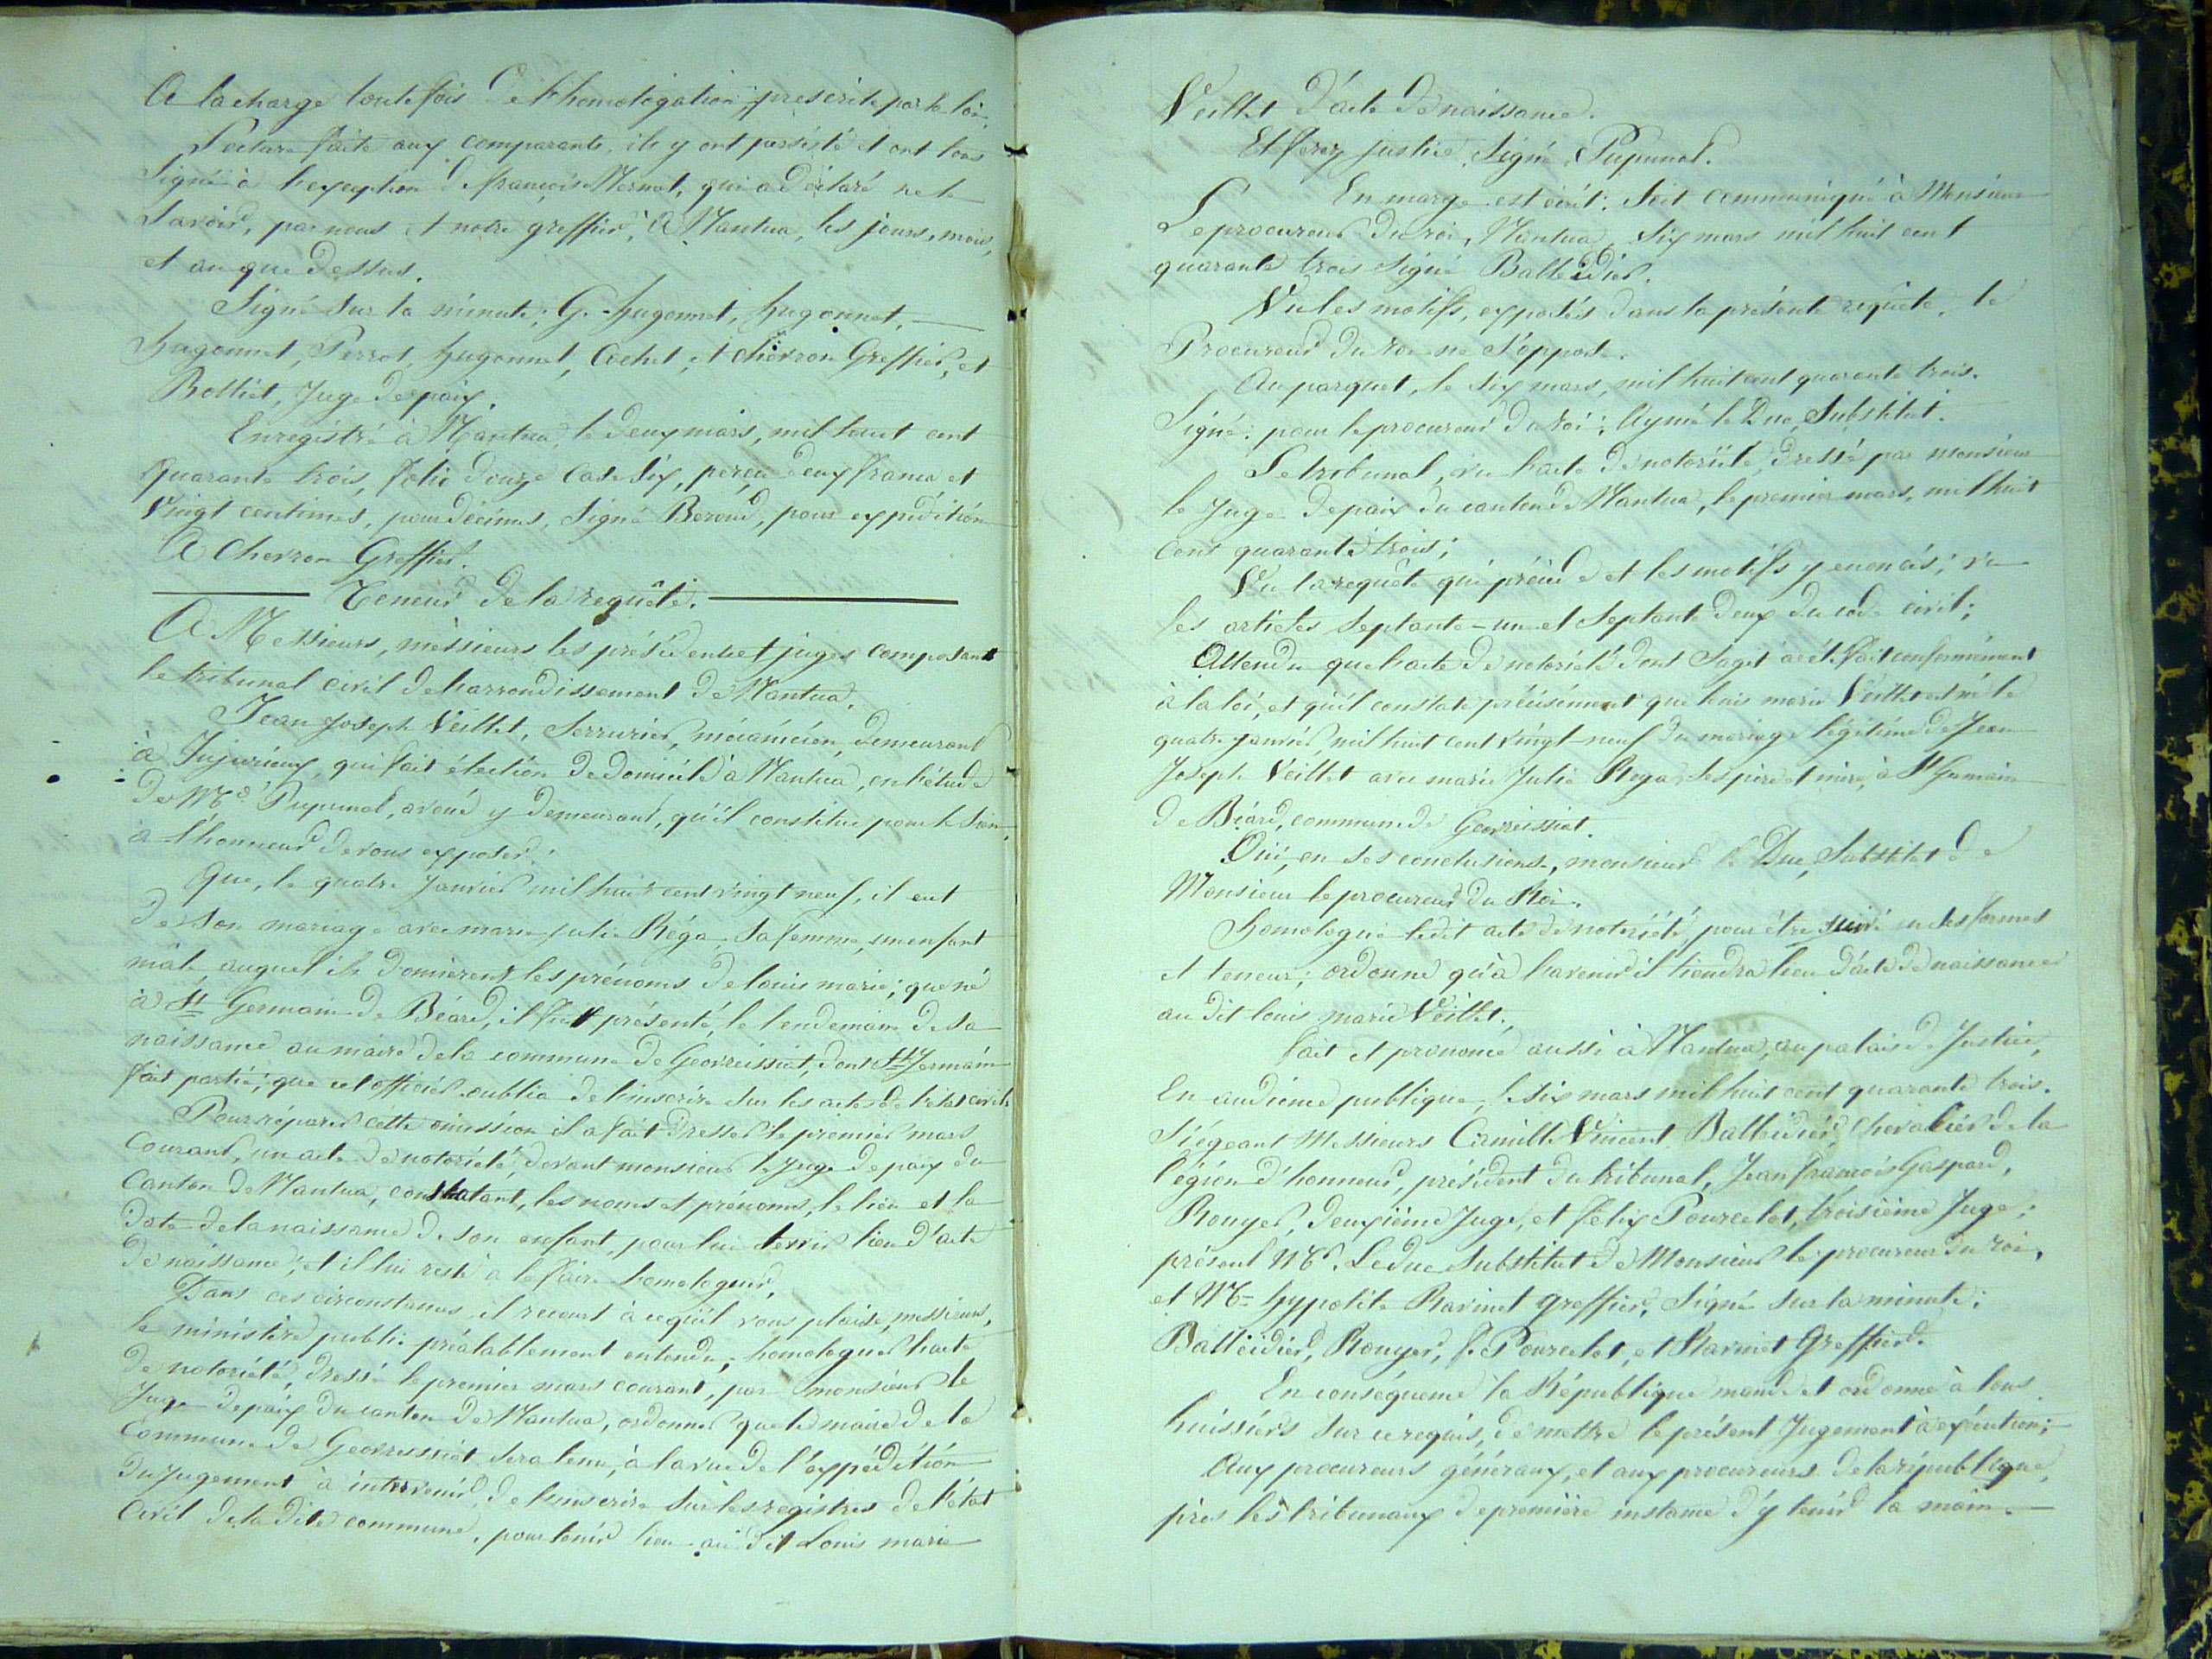 A la charge toutefois de l'homologation prescrite par la loi.
Lecture faite aux comparants, ils y ont persisté et ont tous
signé à l'exception de françois Mermet, qui a déclaré ne le
savoir, par nous et notre greffier, à Nantua, les jours, mois,
et an que dessus.
Signé sur la minute; G. hugonnet, hugonnet,
hugonnet, Perrot, hugonnet, Cochet, et chevron Greffier, et
Bolliet, Juge de paix.
Enregistré à Nantua, le deux mars, mil huit cent
quarante trois, folio douze case six, perçu deux francs et
vingt centimes, pour décimes, signé Beroud, pour expédition
A Chevron Greffier.
Teneur de la requête.
A Messieurs, messieurs les présidents et juges composant
le tribunal civil de l'arrondissement de Nantua.
Jean Joseph Veillet, Serrurier, mécanicien, demeurant
à Jujurieux, qui fait élection de domicile à Nantua, en l'étude
de Me Pupunat, avoué y demeurant, qu'il constitue pour le sien,
a l'honneur de vous exposer:
Que, le quatre Janvier mil huit cent vingt neuf, il eut
de son mariage avec marie julie Réga sa femme, un enfant
mâle, auquel ils donnèrent les prénoms de louis marie; que né
à St Germain de Béard, il fut présenté, le lendemain de sa
naissance au maire de la commune de Géovreissiat, dont St Germain
fait partie; que cet officier oublia de l'inscrire sur les actes de l'état civil.
Pour réparer cette omission il a fait dresser le premier mars
courant, un acte de notoriété, devant monsieur le Juge de paix du
Canton de Nantua, constatant, les noms et prénoms, le lieu et la
date de la naissance de son enfant, pour lui servir lieu d'acte
de naissance; et il lui reste à le faire homologuer,
Dans ces circonstances, il recourt à ce qu'il vous plaise, messieurs,
le ministère public préalablement entendu; homologuer l'acte
de notoriété, dressé le premier mars courant, par monsieur le
Juge de paix du canton de Nantua, ordonner que le maire de la
Commune de Geovressiat sera tenu, à la vue de l'expédition
du Jugement à intervenir, de l'inscrire sur les registres de l'état
Civil de la dite commune, pour tenir lieu au dit Louis marie
Veillet d'acte de naissance.
Et ferez justice. Signé, Pupunat.
En marge est écrit: Soit communiqué à Monsieur
Le procureur du roi, Nantua, six mars mil huit cent
quarante trois signé Balleidier.
Vu les motifs, exposés dans la présente requête, le
Procureur du roi ne s'oppose.
Au parquet, le six mars, mil huit cent quarante trois.
Signé: pour le procureur du roi: Aymé le Duc, Substitut.
Le tribunal, vu l'acte de notoriété, dressé par monsieur
le Juge de paix du canton de Nantua, le premier mars, mil huit
cent quarante trois;
Vu la requête qui précède et les motifs y énoncés; vu
les articles septante-un et septante deux du code civil;
Attendu que l'acte de notoriété dont s'agit a été fait conformément
à la loi, et qu'il constate précisément que louis marie Veillet est né le
quatre janvier, mil huit cent vingt-neuf du mariage légitime de Jean
Joseph Veillet avec marie Julie Rega ses père et mère, à St Germain
de Béard, commune de Geovreissiat.
Oui, en ses conclusions, monsieur le Duc, Substitut de
Monsieur le procureur du Roi.
Homologue ledit acte de notoriété, pour être suivi en ses formes
et teneur; ordonne qu'à l'avenir il tiendra lieu d'acte de naissance
au dit louis marie Veillet.
fait et prononcé aussi à Nantua, au palais de Justice,
En audience publique, le six mars mil huit cent quarante trois.
Siégeant Messieurs Camille Vincent Balleidier, Chevalier de la
légion d'honneur, président du tribunal, Jean françois Gaspard,
Rouyer, deuxième Juge, et félix Pourcelot, troisième Juge;
présent Mr. Leduc Substitut de Monsieur le procureur du roi,
et Me hypolite Ravinet greffier, Signé sur la minute:
Balleidier, Rouyer, f. Pourcelot, et Ravinet Greffier.
En conséquence la République mande et ordonne à tous
huissiers sur ce requis, de mettre le présent Jugement à exécution;
Aux procureurs généraux, et aux procureurs de la république,
près les tribunaux de première instance d'y tenir la main.